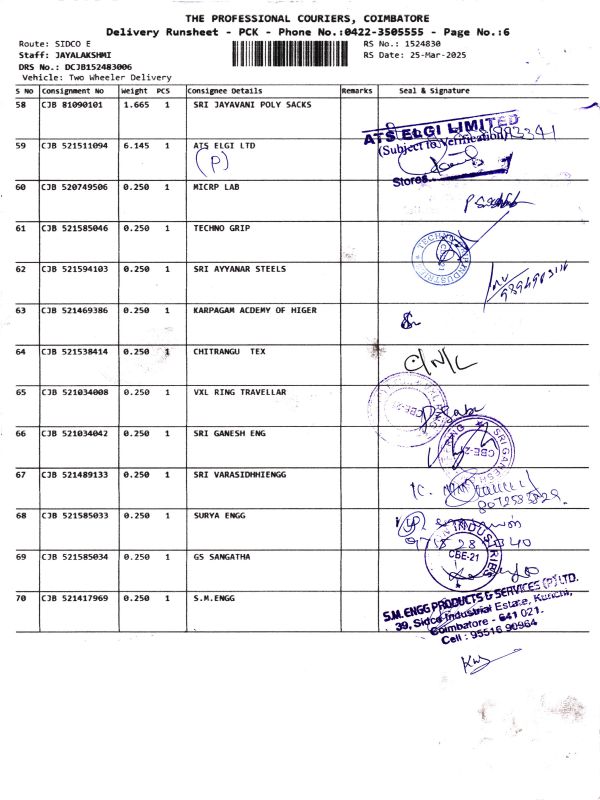 THE PROFESSIONAL COURIERS, COIMBATORE
Delivery Runsheet - PCK - Phone No.:0422-3505555 - Page No.:6
Route: SIDCO E
RS No.: 1524830
Staff: JAYALAKSHMI
RS Date: 25-Mar-2025
DRS No.: DCJB152483006
Vehicle: Two Wheeler Delivery
S NO Consignment No Weight PCS Consignee Details Remarks Seal & Signature
58 CJB 81090101 1.665 1 SRI JAYAVANI POLY SACKS
59 CJB 521511094 6.145 1 ATS ELGI LTD
(P)
ATS ELGI LIMITED
(Subject to Verification)
Stores
60 CJB 520749506 0.250 1 MICRP LAB
61 CJB 521585046 0.250 1 TECHNO GRIP
62 CJB 521594103 0.250 1 SRI AYYANAR STEELS
63 CJB 521469386 0.250 1 KARPAGAM ACDEMY OF HIGER
64 CJB 521538414 0.250 1 CHITRANGU TEX
65 CJB 521034008 0.250 1 VXL RING TRAVELLAR
66 CJB 521034042 0.250 1 SRI GANESH ENG
SRI GANESH
CBE-21
67 CJB 521489133 0.250 1 SRI VARASIDHHIENGG
68 CJB 521585033 0.250 1 SURYA ENGG
69 CJB 521585034 0.250 1 GS SANGATHA
INDUSTRIES
CBE-21
70 CJB 521417969 0.250 1 S.M.ENGG
S.M. ENGG PRODUCTS & SERVICES (P) LTD.
39, Sidco Industrial Estate, Kurichi,
Coimbatore - 641 021.
Cell : 95516 90964